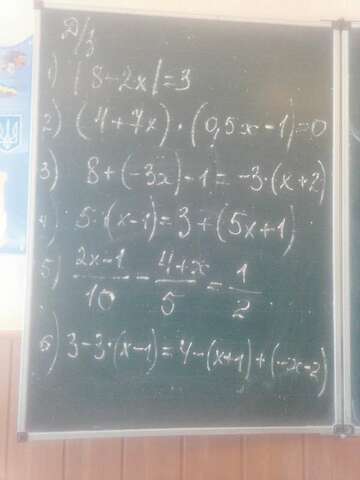 Д/з
1) |8-2x|=3
2) (4+7x)·(0,5x-1)=0
3) 8+(-3x)-1=-3·(x+2)
4) 5·(x-1)=3+(5x+1)
5) \frac{2x-1}{10} - \frac{4+x}{5} = \frac{1}{2}
6) 3-3·(x-1)=4-(x+1)+(-x-2)